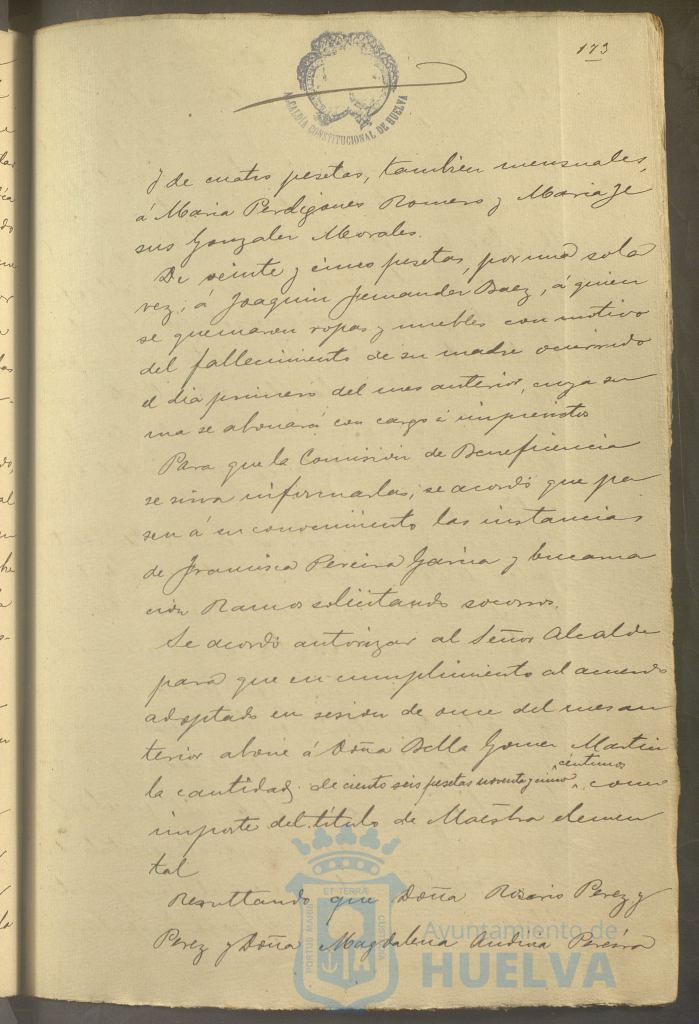 173
ALCALDIA CONSTITUCIONAL DE HUELVA
y de cuatro pesetas, tambien mensuales,
á Maria Perdigones Romero y Maria Je
sus Gonzalez Morales.
De veinte y cinco pesetas, por una sola
vez, á Joaquin Fernandez Baez, á quien
se quemaron ropas y muebles con motivo
del fallecimiento de su madre ocurrido
el dia primero del mes anterior, cuya su
ma se abonará con cargo á imprevistos
Para que la Comision de Beneficencia
se sirva informarlas, se acordó que pa
sen á su conocimiento las instancias
de Francisca Pereira Garcia y Encarna
cion Ramos solicitando socorros.
Se acordó autorizar al Señor Alcalde
para que en cumplimiento al acuerdo
adoptado en sesion de once del mes an
terior abone á Doña Bella Gomez Martin
la cantidad de ciento seis pesetas noventa y cinco centimos como
importe del título de Maestra elemen
tal
Resultando que Doña Rosario Perez y
Perez y Doña Magdalena Andina Pereira
PORTUS MARIS ET TERRÆ CUSTODIA
Ayuntamiento de
HUELVA